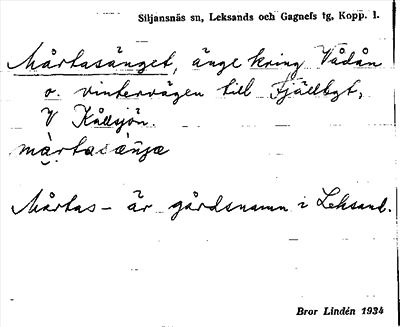 Siljansnäs sn, Leksands och Gagnefs tg, Kopp. l.
Mårtasänget, änge kring Vådån
o. vintervägen till Fjällbgt,
V Kållsjön.
màrtasàŋǝ
Mårtas- är gårdsnamn i Leksand.
Bror Lindén 1934